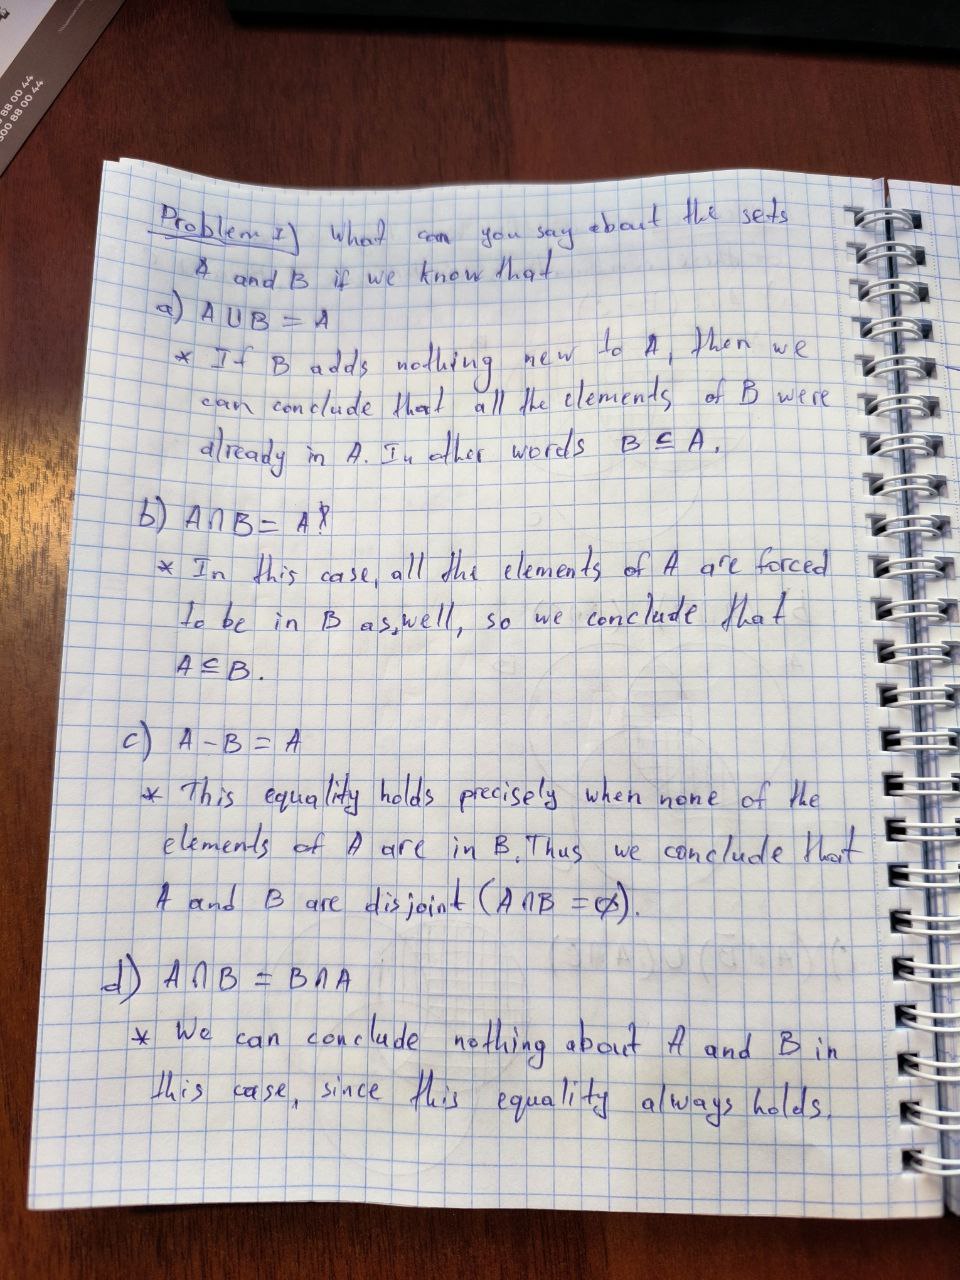 88 00 44
500 88 00 44
Problem I) What can you say about the sets
A and B if we know that
a) A ∪ B = A
* If B adds nothing new to A, then we
can conclude that all the elements of B were
already in A. In other words B ⊆ A.
b) A ∩ B = A
* In this case, all the elements of A are forced
to be in B as well, so we conclude that
A ⊆ B.
c) A - B = A
* This equality holds precisely when none of the
elements of A are in B. Thus we conclude that
A and B are disjoint (A ∩ B = ∅).
d) A ∩ B = B ∩ A
* We can conclude nothing about A and B in
this case, since this equality always holds.